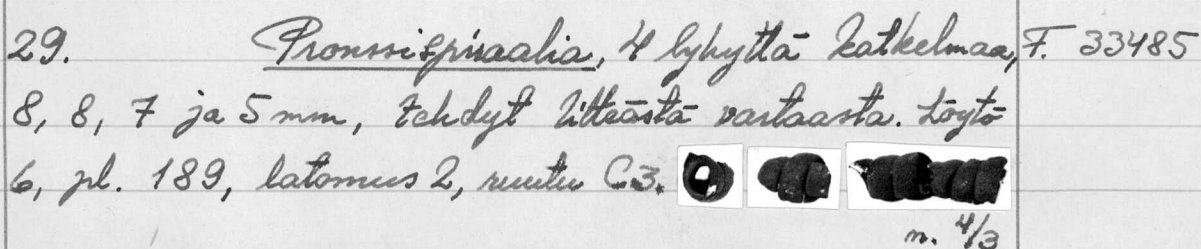 29. Pronssispiraalia, 4 lyhyttä katkelmaa, F. 33485
8, 8, 7 ja 5 mm, tehdyt litteästä vartaasta. Löytö
6, pl. 189, latomus 2, ruutu C3.
n. 4/3